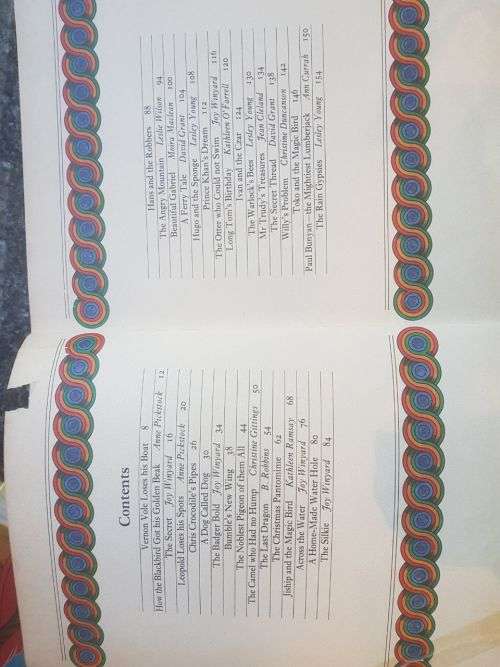 Contents
Vernon Vole Loses his Boat 8
How the Blackbird Got his Golden Beak Anne Pickstock 12
The Secret Joy Winyard 16
Leopold Loses his Spots Anne Pickstock 20
Chris Crocodile's Pipes 26
A Dog Called Dog 30
The Badger Bold Joy Winyard 34
Bumble's New Wing 38
The Noblest Pigeon of them All 44
The Camel who Had no Hump Christine Gittings 50
The Last Dragon B. Robbins 54
The Christmas Pantomime 62
Jiship and the Magic Bird Kathleen Ramsay 68
Across the Water Joy Winyard 76
A Home-Made Water Hole 80
The Silkie Joy Winyard 84
Hans and the Robbers 88
The Angry Mountain Leslie Wilson 94
Beautiful Gabriel Moira Maclean 100
A Ferry Tale David Grant 104
Hugo and the Sponge Lesley Young 108
Prince Khan's Dream 112
The Otter who Could not Swim Joy Winyard 116
Long Tom's Birthday Kathleen O'Farrell 120
Ivan and the Czar 124
The Warlock's Bees Lesley Young 130
Mr Trudy's Treasures Jean Cleland 134
The Secret Thread David Grant 138
Willy's Problem Christine Duncanson 142
Toko and the Magic Bird 146
Paul Bunyan – the Mightiest Lumberjack Ann Currah 150
The Rain Gypsies Lesley Young 154